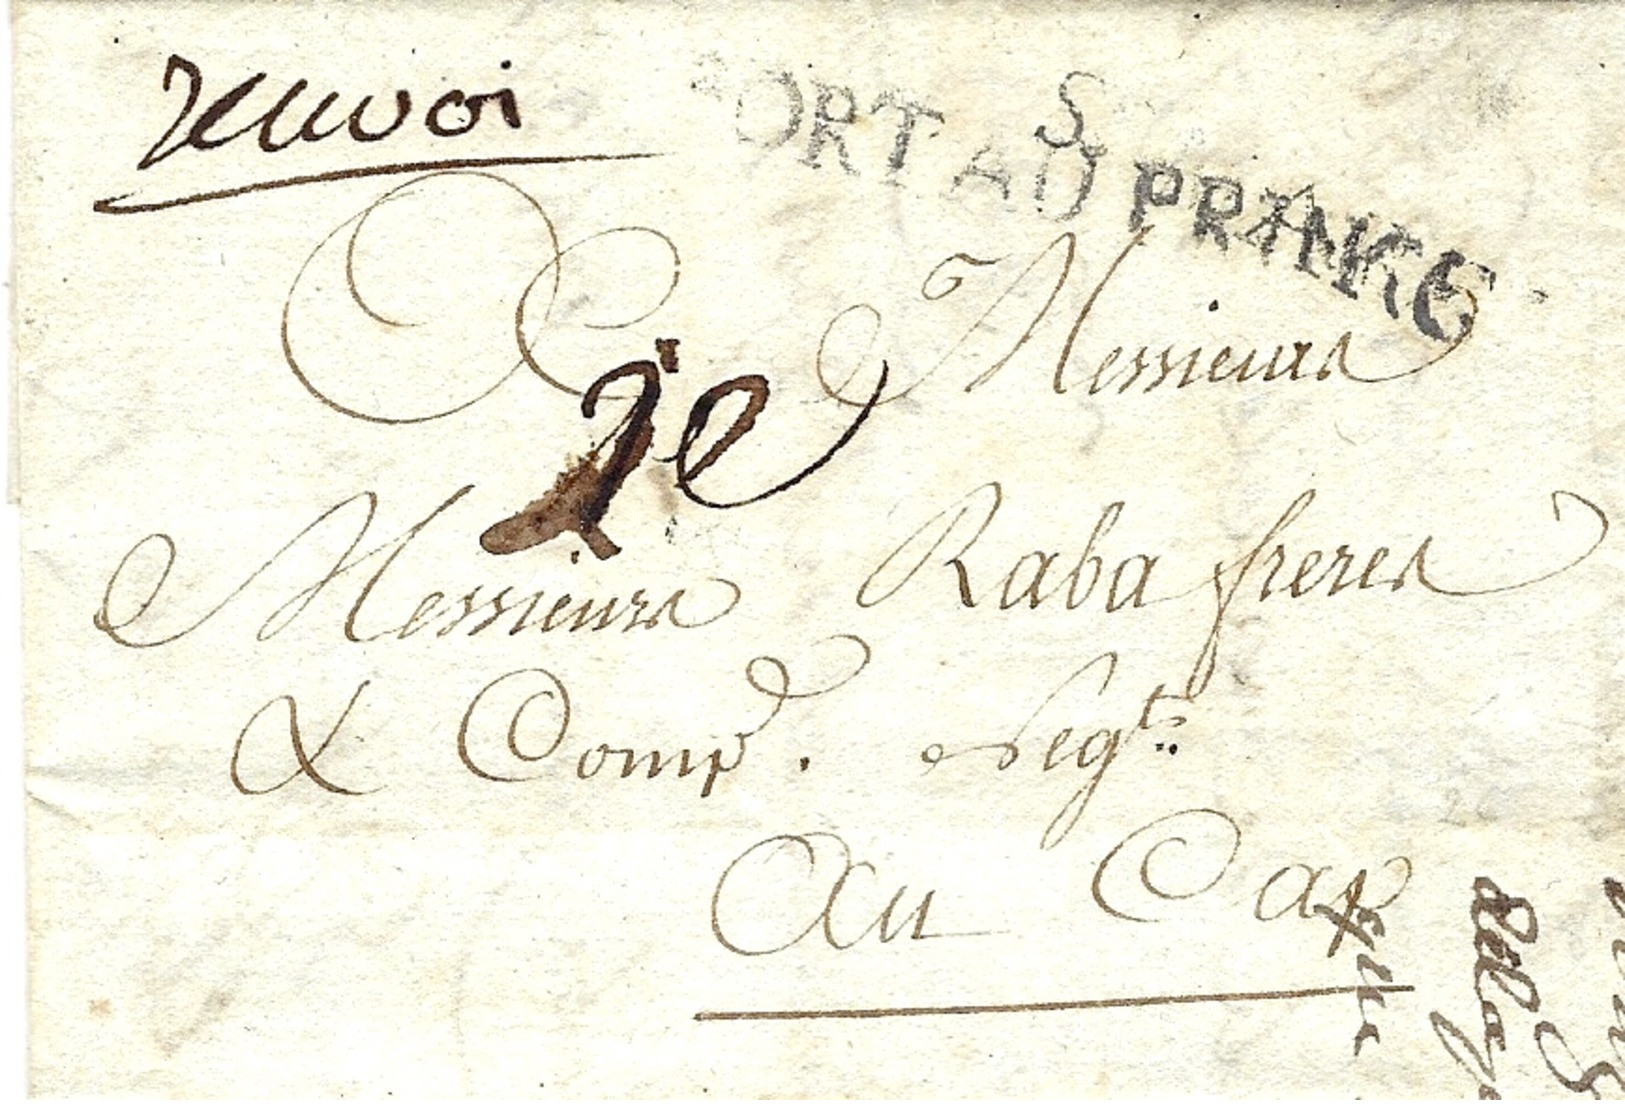 renvoi
PORT AU PRINCE
S
Messieurs
2e
Messieurs Raba freres
& Comp. Negts
Au Cap